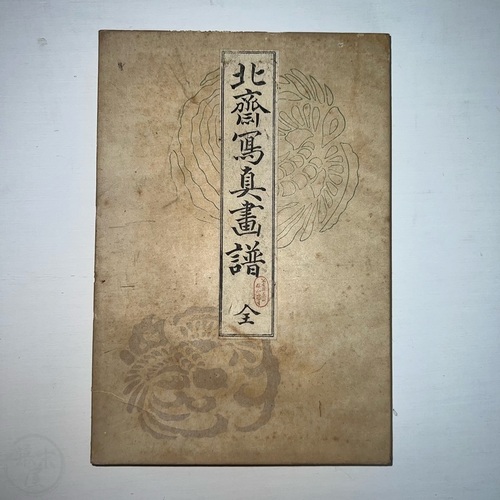 北齋寫真畫譜
全